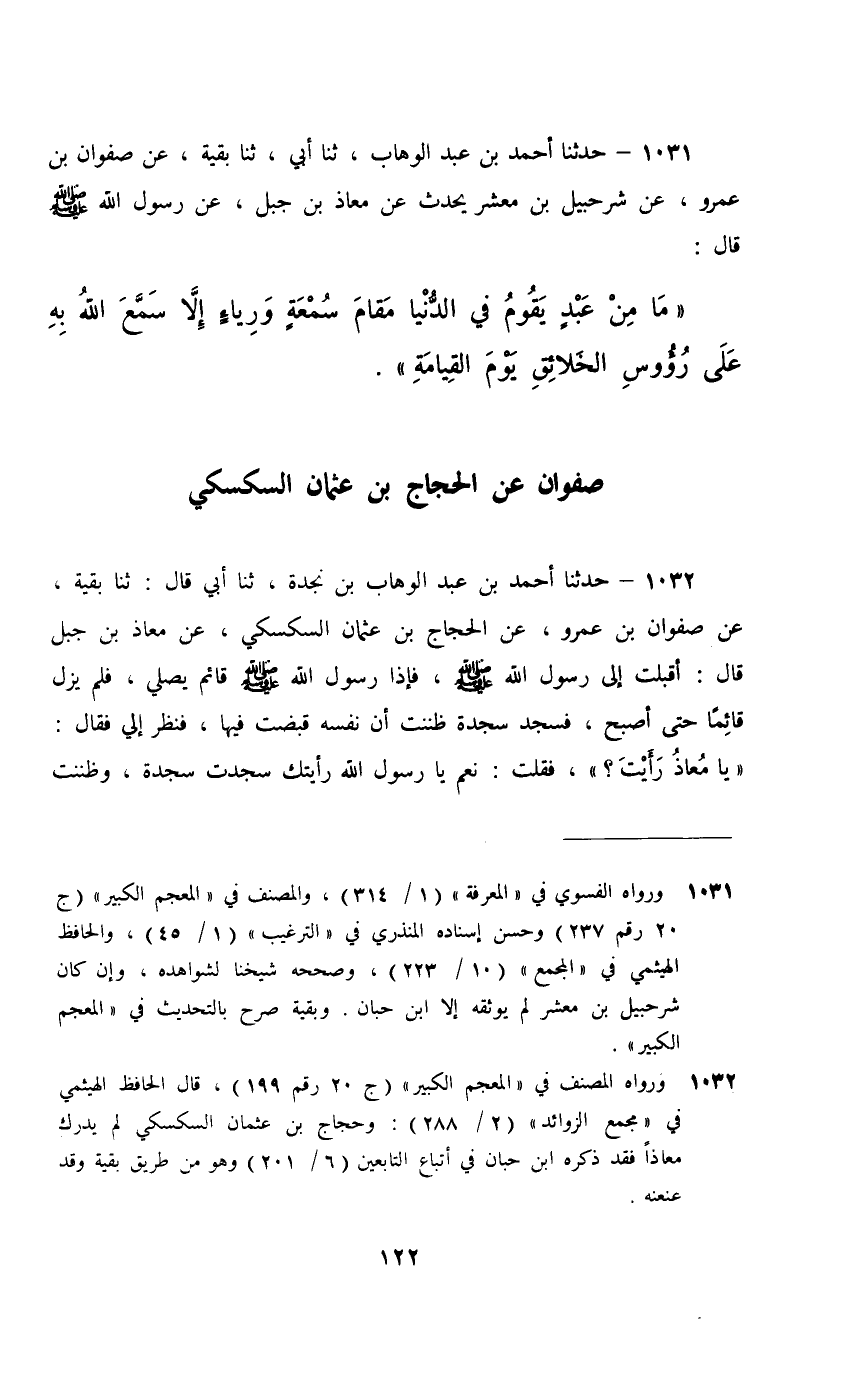 ١٠٣١ – حدثنا أحمد بن عبد الوهاب ، ثنا أبي ، ثنا بقية ، عن صفوان بن
عمرو ، عن شرحبيل بن معشر يحدث عن معاذ بن جبل ، عن رسول الله ﷺ
قال :
« مَا مِنْ عَبْدٍ يَقُومُ في الدُّنْيا مَقامَ سُمْعَةٍ وَرِياءٍ إِلَّا سَمَّعَ اللهُ بِهِ
عَلَى رُؤُوسِ الخَلائِقِ يَوْمَ القِيامَةِ » .
صفوان عن الحجاج بن عثمان السكسكي
١٠٣٢ – حدثنا أحمد بن عبد الوهاب بن نجدة ، ثنا أبي قال : ثنا بقية ،
عن صفوان بن عمرو ، عن الحجاج بن عثمان السكسكي ، عن معاذ بن جبل
قال : أقبلت إلى رسول الله ﷺ ، فإذا رسول الله ﷺ قائم يصلي ، فلم يزل
قائِمًا حتى أصبح ، فسجد سجدة ظننت أن نفسه قبضت فيها ، فنظر إلي فقال :
« يا مُعاذُ رَأَيْتَ ؟ » ، فقلت : نعم يا رسول الله رأيتك سجدت سجدة ، وظننت
١٠٣١ ورواه الفسوي في « المعرفة » (١ / ٣١٤) ، والمصنف في « المعجم الكبير » (ج
٢٠ رقم ٢٣٧) وحسن إسناده المنذري في « الترغيب » (١ / ٤٥) ، والحافظ
الهيثمي في « المجمع » (١٠ / ٢٢٣) ، وصححه شيخنا لشواهده ، وإن كان
شرحبيل بن معشر لم يوثقه إلا ابن حبان . وبقية صرح بالتحديث في « المعجم
الكبير » .
١٠٣٢ ورواه المصنف في « المعجم الكبير » (ج ٢٠ رقم ١٩٩) ، قال الحافظ الهيثمي
في « مجمع الزوائد » (٢ / ٢٨٨) : وحجاج بن عثمان السكسكي لم يدرك
معاذاً فقد ذكره ابن حبان في أتباع التابعين (٦ / ٢٠١) وهو من طريق بقية وقد
عنعنه .
١٢٢